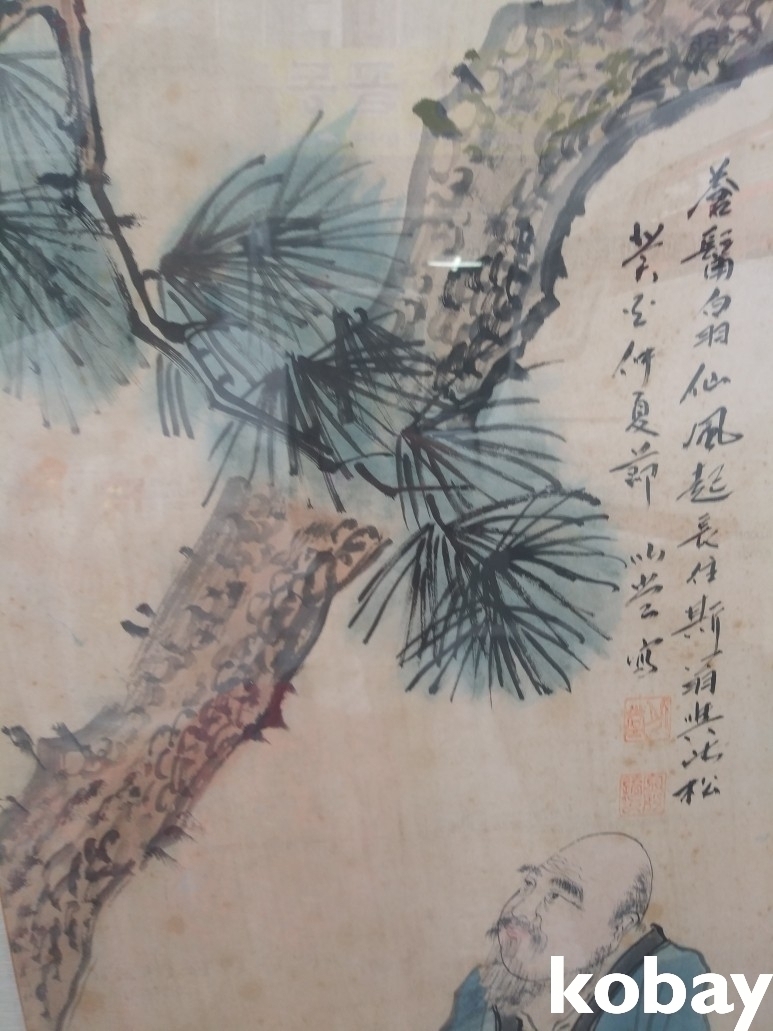 蒼髯白羽仙風起長住斯松
癸亥仲夏節 小堂寫
kobay